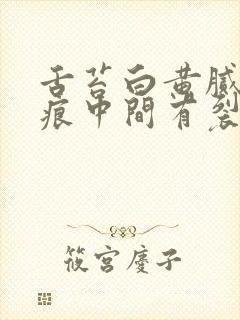 舌苔白黄腻
痕中間有裂
筱宫慶子